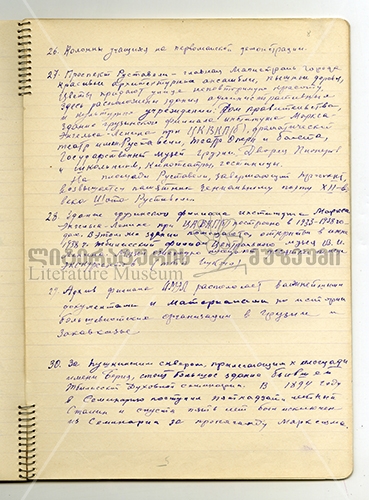 26. Колонны учащихся на первомайской демонстрации.
27. Проспект Руставели – главная магистраль города
красивые архитектурные ансамбли, пышные деревья,
цветы придают улице неповторимую красоту
Здесь расположены здания административных
и культурных учреждений: Дом правительства,
здание грузинского филиала института Маркса-
Энгельса-Ленина при ЦК ВКП(б), драматический
театр им. Руставели, театр Оперы и балета,
Государственный музей Грузии, Дворец Пионеров
и школьников, кинотеатры, гостиницы.
На площади Руставели, завершающей проспект,
возвышается памятник гениальному поэту XII-го
века Шота Руставели.
28. Здание грузинского филиала института Маркса
Энгельса-Ленина при ЦК ВКП(б) построено в 1933-1938
год. В этом же здании помещается открытый в
1938 г. Тбилисский филиал Центрального музея В. И.
ლიტერატურის მუზეუმი
Literature Museum
29. Архив филиала ИМЭЛ располагает важнейшими
документами и материалами по истории
большевистских организаций в Грузии и
Закавказье.
30. За Пушкинским сквером, прилегающим к площади
имени Берия, стоит большое здание бывшей
Тбилисской Духовной семинарии. В 1894 году
в Семинарию поступил пятнадцатилетний
Сталин и спустя пять лет был исключен
из Семинарии за пропаганду Марксизма.